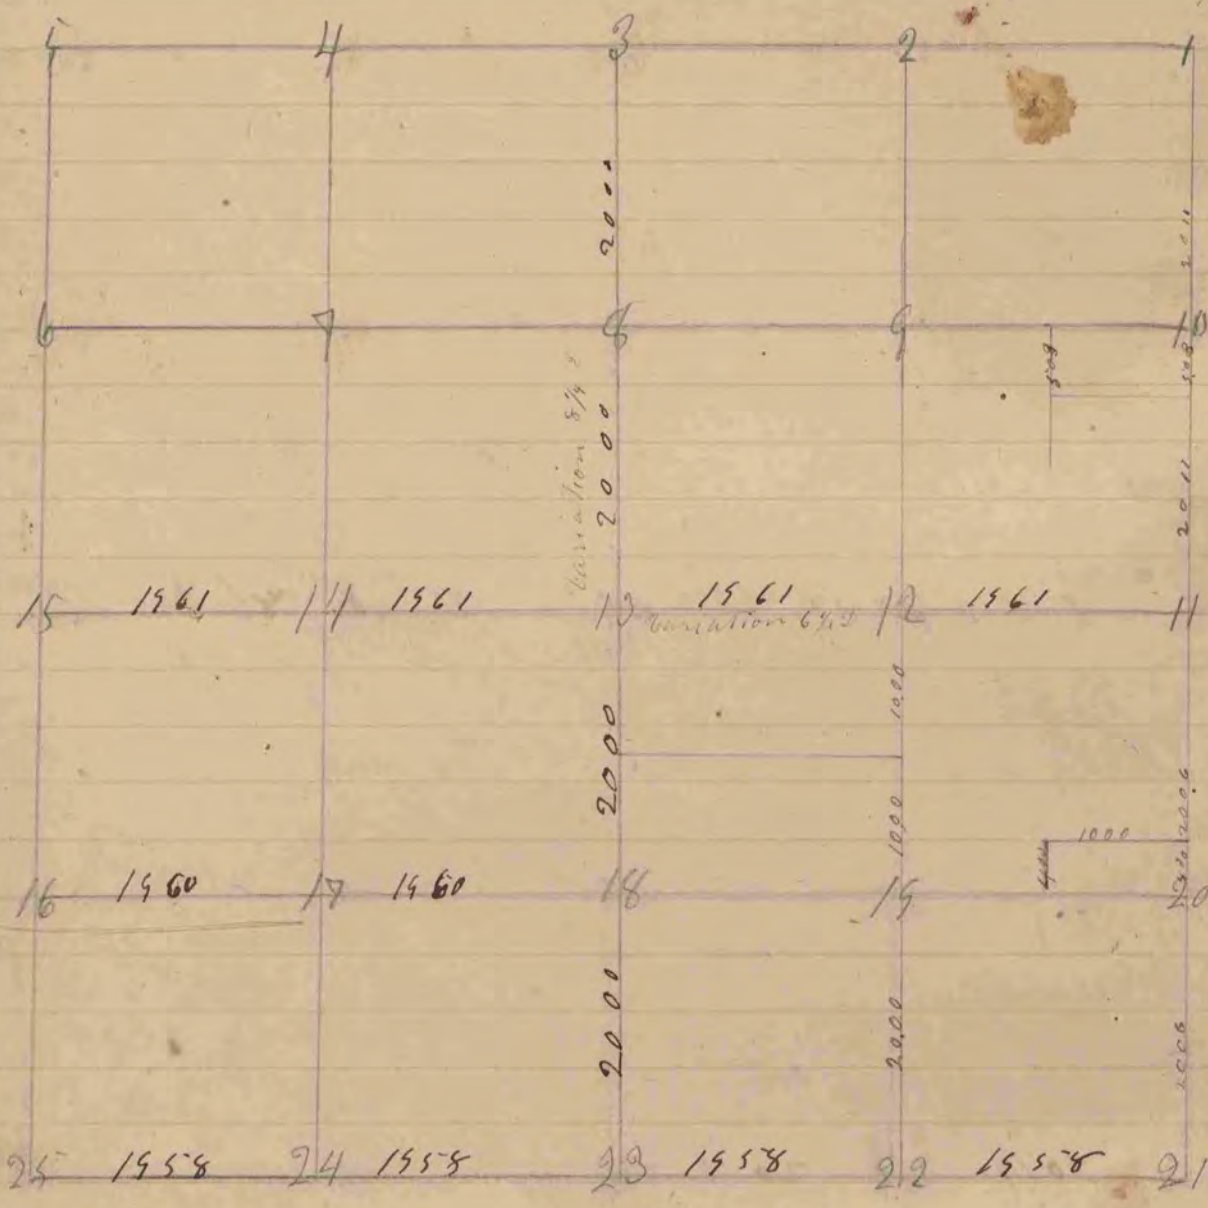 5 4 3 2 1
2000
2011
6 7 8 9 10
508 508
Variation
2000
2011
15 1961 14 1961 13 1961 12 1961 11
variation
1000
2000
1000
2006
1000
16 1960 17 1960 18 19 20
2000
2000
2006
25 1958 24 1958 23 1958 22 1958 21